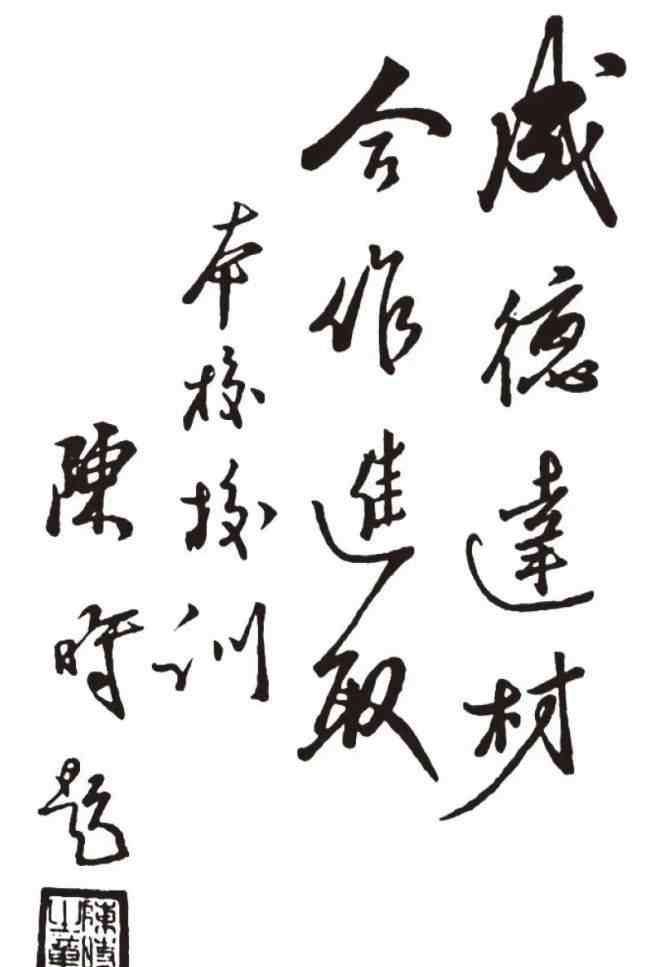 成德達材
合作進取
本校校訓
陳時題